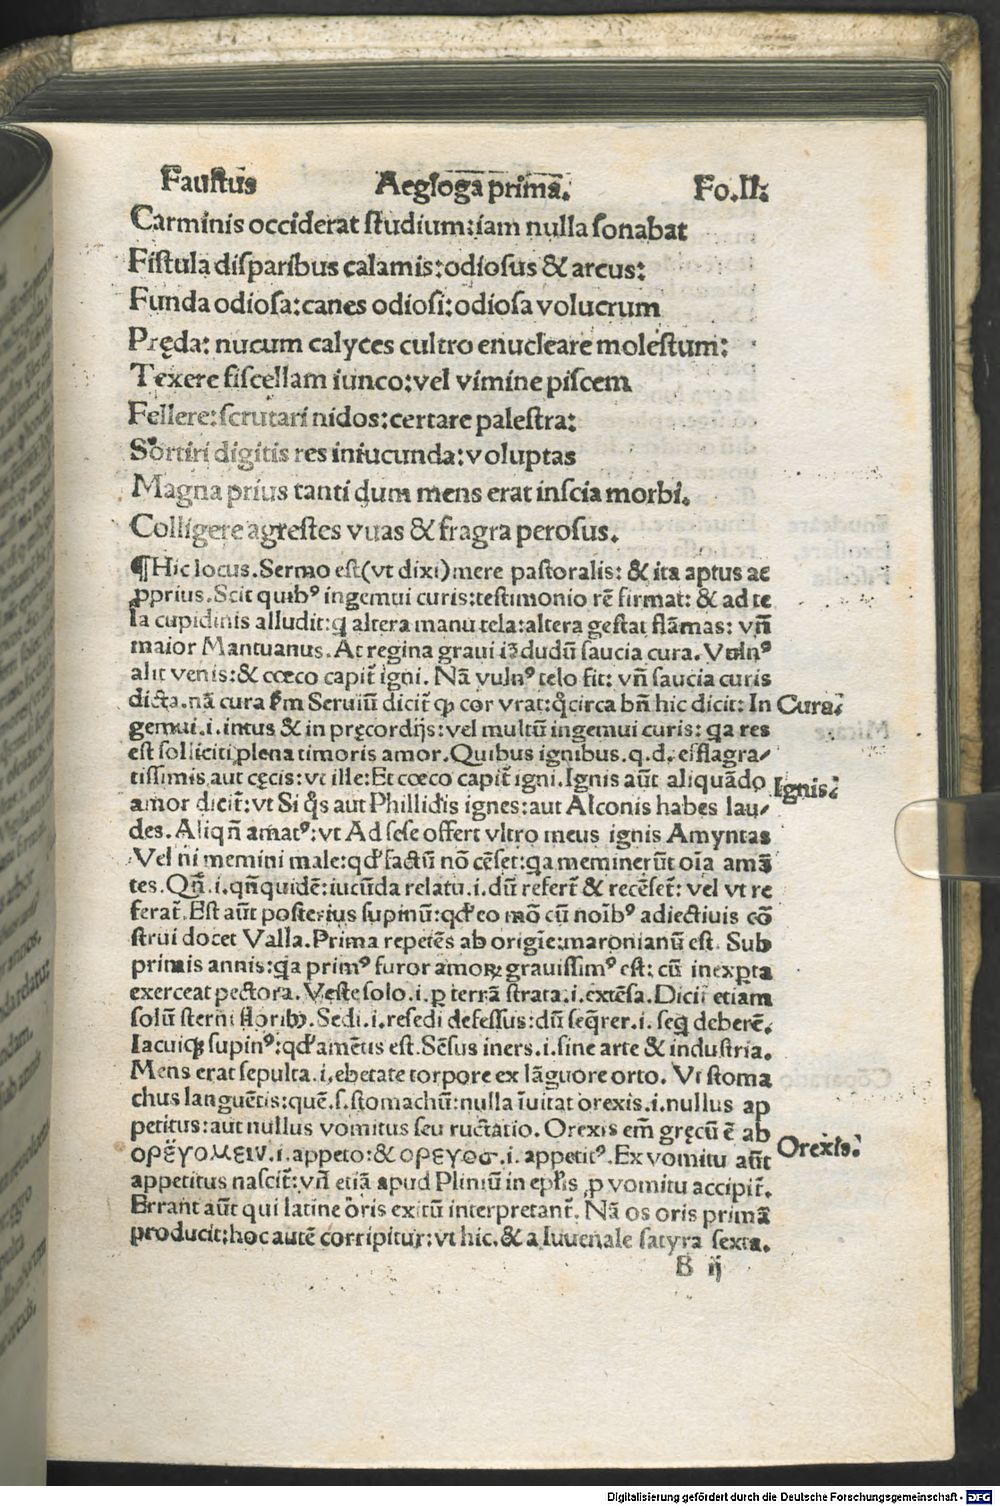 Faustus Aegloga prima. Fo.II.
Carminis occiderat studium:iam nulla sonabat
Fistula disparibus calamis:odiosus & arcus:
Funda odiosa:canes odiosi:odiosa volucrum
Pręda: nucum calyces cultro enucleare molestum:
Texere fiscellam iunco:vel vimine piscem
Fellere:scrutari nidos:certare palestra:
Sortiri digitis res iniucunda:voluptas
Magna prius tanti dum mens erat inscia morbi.
Colligere agrestes vuas & fragra perosus.
¶Hic locus.Sermo est(vt dixi)mere pastoralis: & ita aptus ac
ꝓprius.Scit quibꝰ ingemui curis:testimonio rē firmat: & ad te
la cupidinis alludit:ꝙ altera manu tela:altera gestat flāmas: vn̄
maior Mantuanus. At regina graui iꝫdudū saucia cura. Vulnꝰ
alit venis:& cœco capit̄ igni. Nā vulnꝰ telo fit: vn̄ saucia curis
dicta.nā cura ẜm Seruiū dicit̄ ꝙ cor vrat:q̄circa bn̄ hic dicit: In
Cura.
gemui.i.intus & in pręcordijs:vel multū ingemui curis: qa res
est solliciti plena timoris amor.Quibus ignibus.q.d. efflagra-
tissimis aut cęcis:vt ille:Et cœco capit̄ igni.Ignis aūt aliquādo
Ignis.
amor dicit̄:vt Si q̇s aut Phillidis ignes:aut Alconis habes lau-
des.Aliqn̄ amatꝰ:vt Ad sese offert vltro meus ignis Amyntas
Vel ni memini male:qd' factū nō cēset:qa meminerūt oīa amā
tes.Qn̄.i.qn̄quidē:iucūda relatu.i.dū refert̄ & recēset̄: vel vt re
ferat̄.Est aūt posterius supinū:qd' eo mō cū noībꝰ adiectiuis cō
strui docet Valla.Prima repetēs ab origīe:maronianū est. Sub
primis annis:qa primꝰ furor amorꝝ grauissimꝰ est: cū inexꝑta
exerceat pectora. Veste solo.i.ꝑ terrā strata.i.extēsa.Dicit etiam
solū sterni floribꝰ.Sedi.i.resedi defessus:dū seq̄rer.i. seq̇ deberē.
Iacuiqꝫ supinꝰ:qd' amētis est.Sēsus iners.i.sine arte & industria.
Mens erat sepulta.i.ebetate torpore ex lāguore orto. Vt stoma
chus languētis:quē.s.stomachū:nulla īuitat orexis.i.nullus ap
petitus:aut nullus vomitus seu ructatio. Orexis em̄ gręcū ē ab
Orexis.
ορέγομειν.i.appeto:& ορεγοσ.i.appetitꝰ.Ex vomitu aūt
appetitus nascit̄:vn̄ etiā apud Pliniū in ep̄lis ꝓ vomitu accipit̄.
Errant aūt qui latine ōris exitū interpretant̄. Nā os oris primā
producit:hoc autē corripitur:vt hic.& a Iuuenale satyra sexta.
B ij
Digitalisierung gefördert durch die Deutsche Forschungsgemeinschaft - DFG